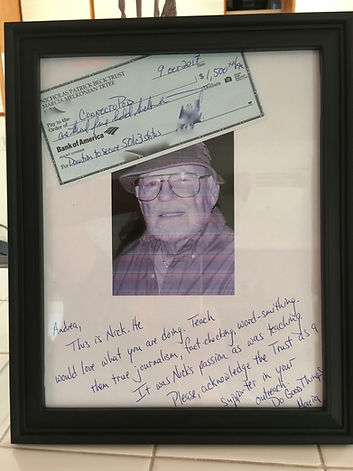 NICHOLAS PATRICK BECK TRUST
MARCIA MELKONIAN TRTEE
9 Oct 2017
Pay to the
Order of
$ 1,500
one thousand five hundred
Dollars
Bank of America
For Donation to secure 501c3 status
Andrea,
This is Nick. He
would love what you are doing. Teach
them true journalism, fact-checking, word-smithing.
It was Nick's passion as was teaching.
Please, acknowledge the Trust as a
supporter in your
outreach.
Do Good Things
Marcia